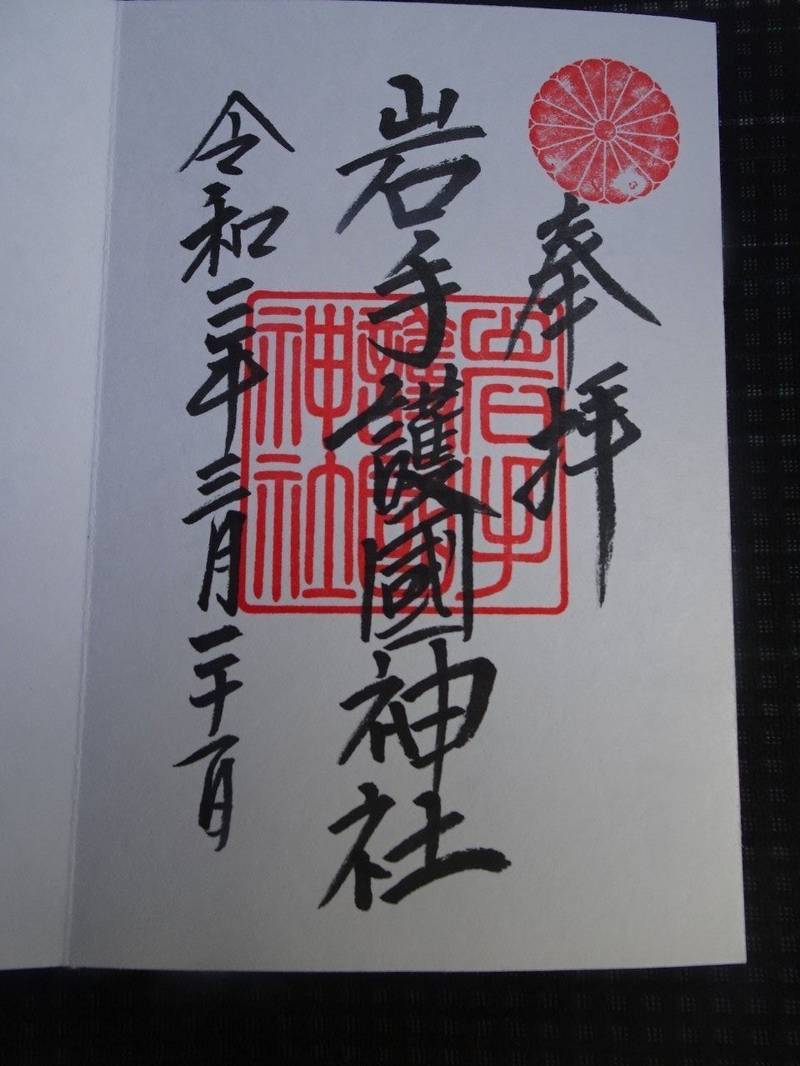 奉拝
岩手護國神社
令和二年三月二十一日
岩手
護國
神社